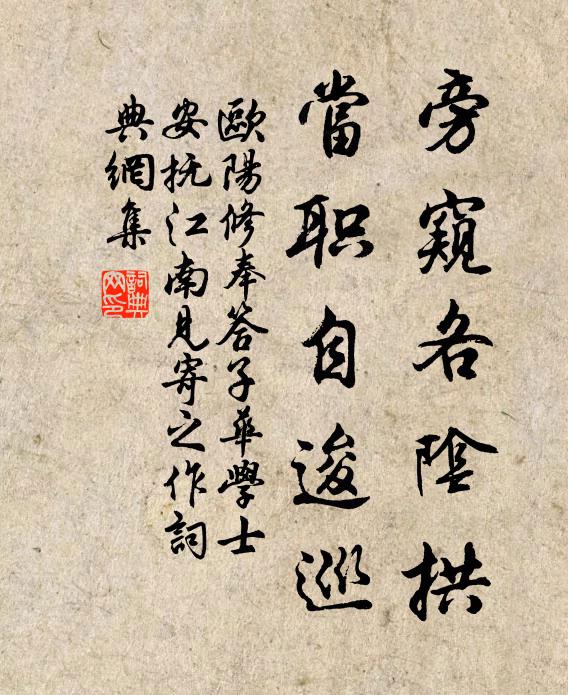 旁窺各陰拱
當职自逡巡
歐陽修奉答子華學士
安抚江南見寄之作詞
典網集
詞典网印